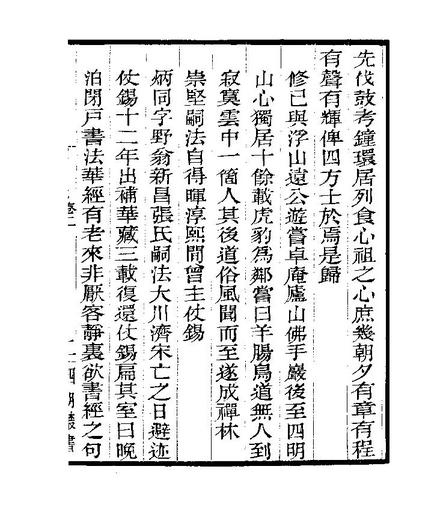 先伐鼓考鐘環居列食心祖之心庶幾朝夕有章有程
有聲有輝俾四方士於焉是歸
修已與浮山遠公遊嘗卓庵廬山佛手巖後至四明
山心獨居十餘載虎豹爲鄰嘗曰羊腸鳥道無人到
寂寞雲中一箇人其後道俗風聞而至遂成禪林
崇堅嗣法自得暉淳熙間曾主仗錫
炳同字野翁新昌張氏嗣法大川濟宋亡之日避迹
仗錫十二年出補華藏三載復還仗錫扁其室曰晚
泊閉戸書法華經有老來非厭客靜裏欲書經之句
四明叢書